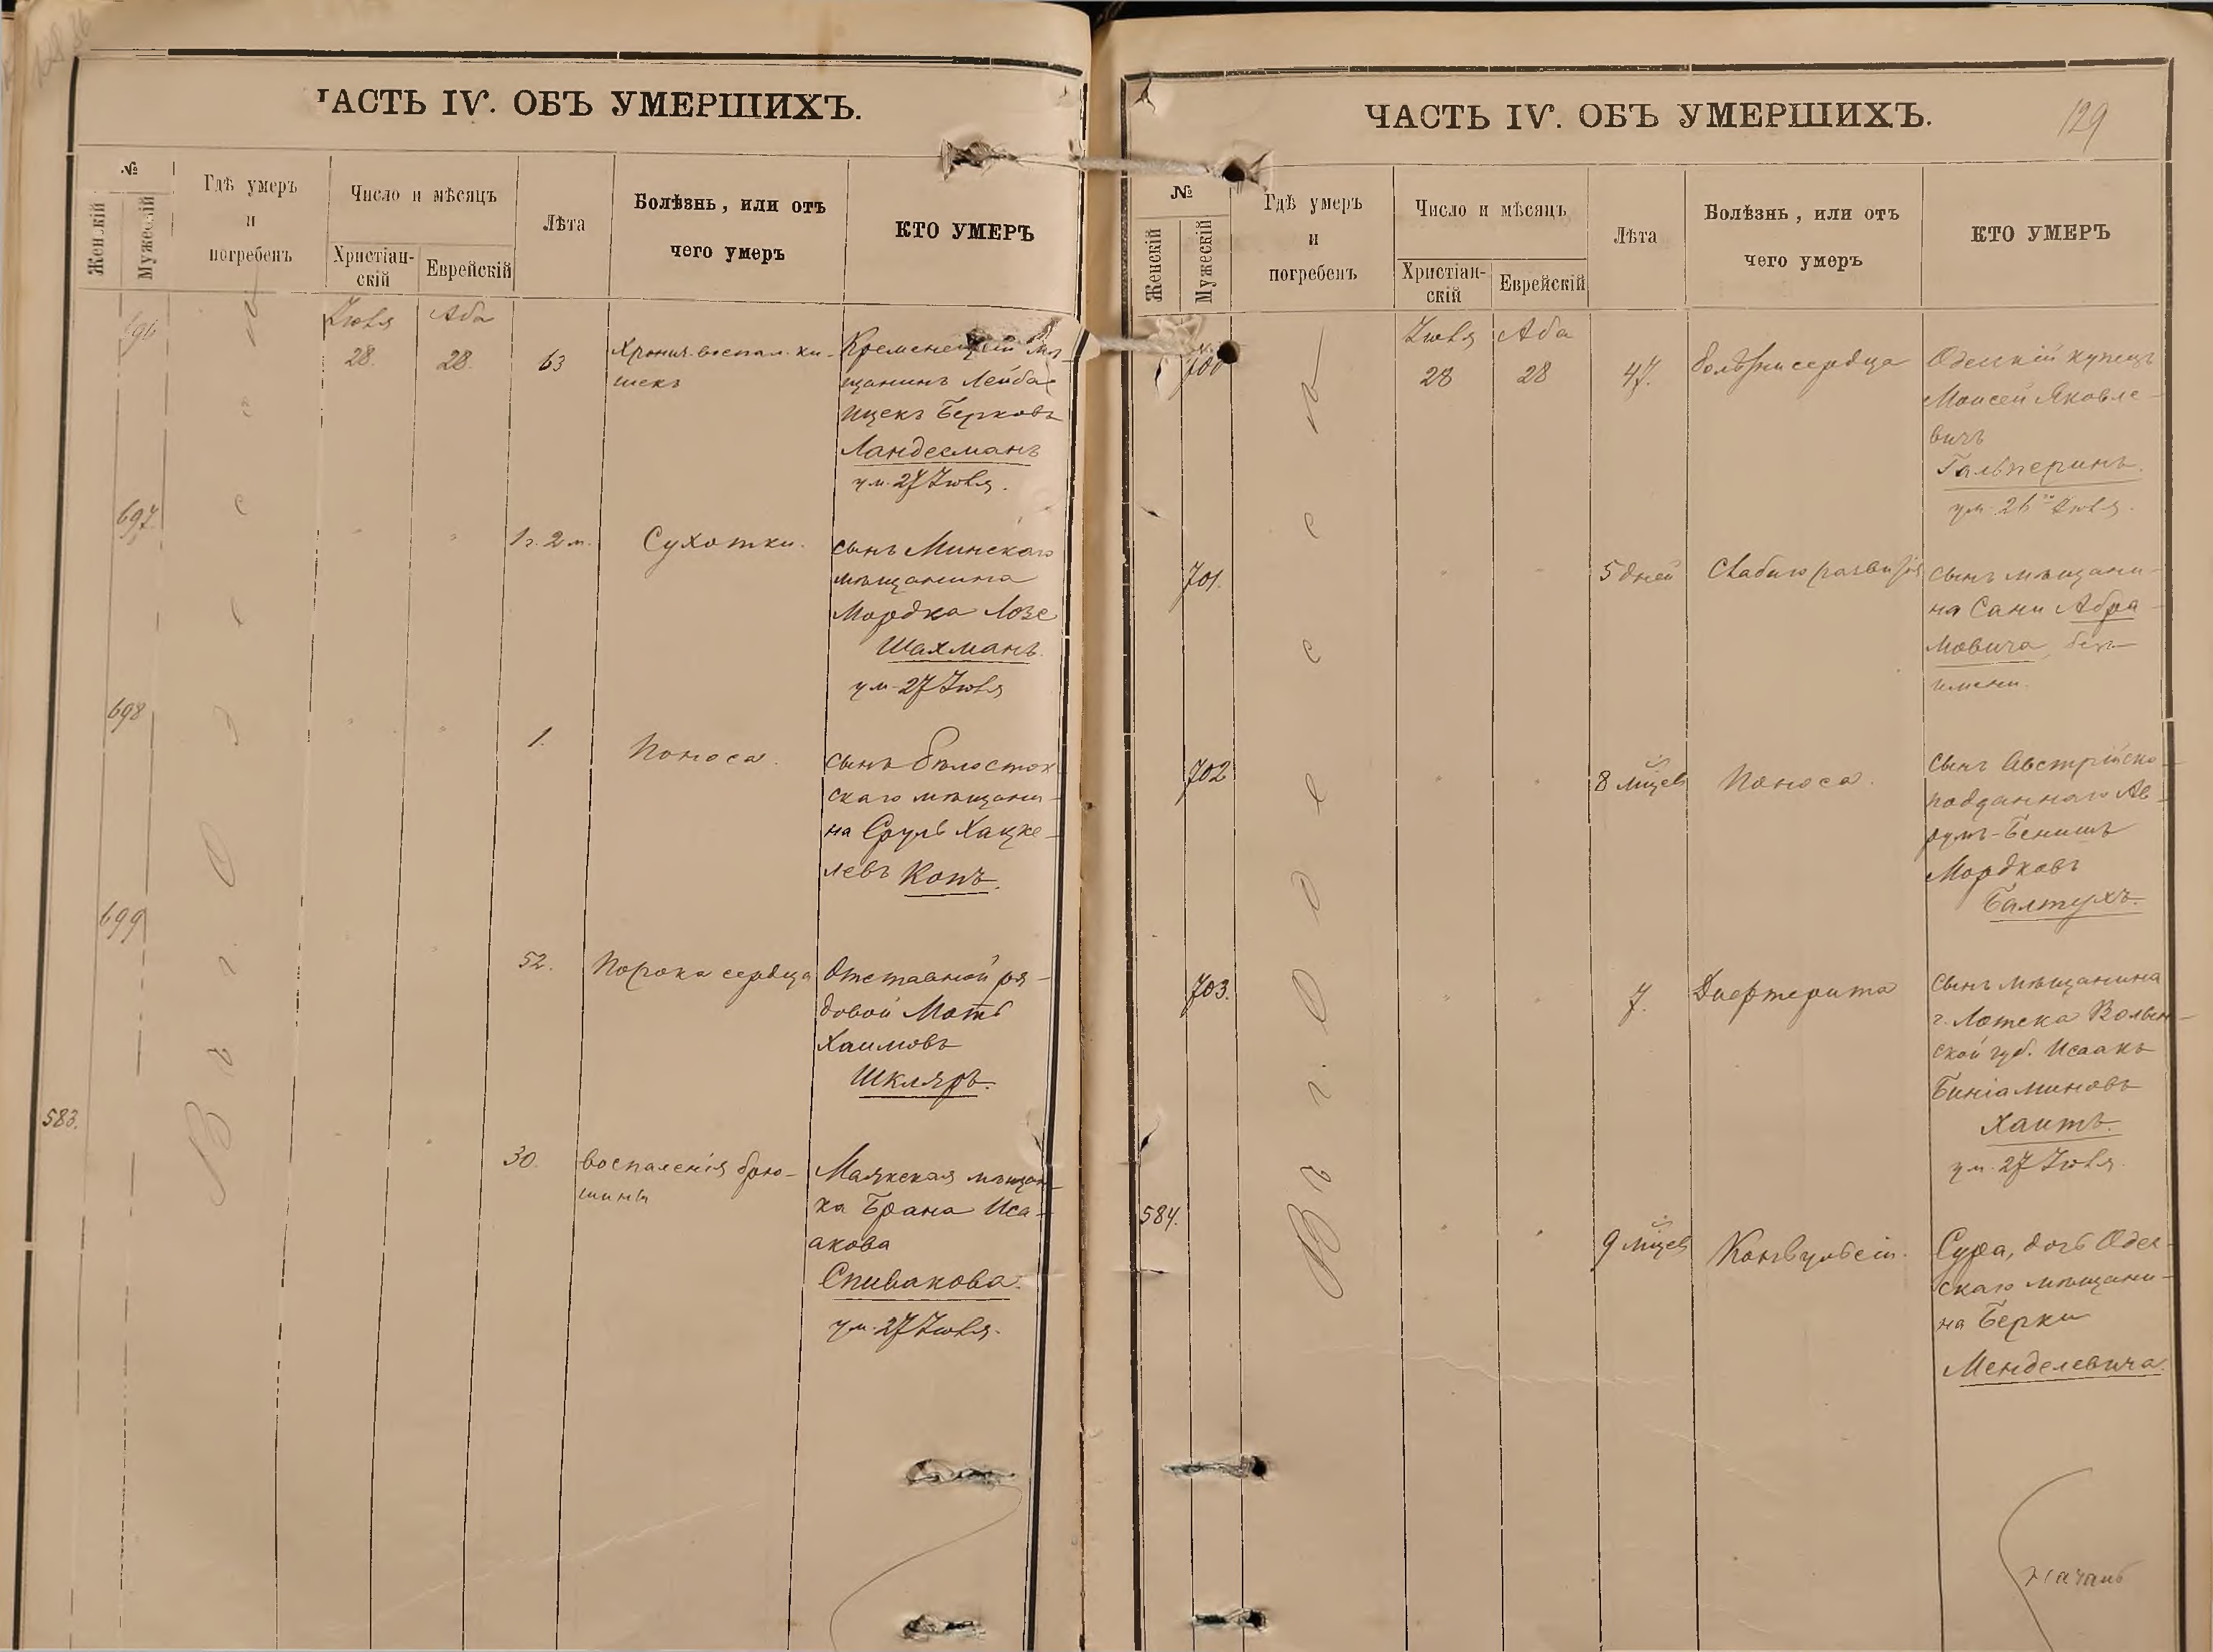 ЧАСТЬ IV. ОБЪ УМЕРШИХЪ.
№
Женскій
Мужескій
Гдѣ умеръ
и
погребенъ
Число и мѣсяцъ
Христіан-
скій
Еврейскій
Лѣта
Болѣзнь, или отъ
чего умеръ
КТО УМЕРЪ
Въ г. Одессѣ
696
Іюля
28.
Аба
28.
63
Хронич. воспал. ки-
шекъ
Кременецкій мѣ-
щанинъ Лейба
Ицекъ Берковъ
Ландесманъ
ум. 27 Іюля.
697.
1 г. 2 м.
Сухотки.
сынъ Минскаго
мѣщанина
Мордка Лозе
Шахманъ.
ум. 27 Іюля
698
1.
Поноса.
сынъ Бѣлосток
скаго мѣщани-
на Сруль Хацке-
левъ Копъ.
699
52.
Порока сердца
Отставной ря-
довой Моть
Хаимовъ
Шкляръ.
583.
30.
воспаленія брю-
шины
Маякская мѣщан-
ка Брана Иса-
акова
Спивакова.
ум. 27 Іюля.
ЧАСТЬ IV. ОБЪ УМЕРШИХЪ.
129
№
Женскій
Мужескій
Гдѣ умеръ
и
погребенъ
Число и мѣсяцъ
Христіан-
скій
Еврейскій
Лѣта
Болѣзнь, или отъ
чего умеръ
КТО УМЕРЪ
Въ г. Одессѣ
700
Іюля
28
Аба
28
47.
болѣзни сердца
Одесскій купецъ
Моисей Яковле-
вичъ
Гальперинъ.
ум. 26го Іюля.
701.
5 дней
Слабаго развитія
сынъ мѣщани-
на Сани Абра-
мовича, безъ
имени.
702
8 мѣцевъ
Поноса.
сынъ Австрійско-
подданнаго Ав-
румъ-Бенишъ
Мордковъ
Балтухъ.
703.
7.
Дифтерита
сынъ мѣщанина
г. Лотска Волын-
ской губ. Исаакъ
Биніаминовъ
Хаитъ.
ум. 27 Іюля.
584.
9 мѣцевъ
Конвульсіи.
Сура, дочь Одес-
скаго мѣщани-
на Берки
Менделевича.